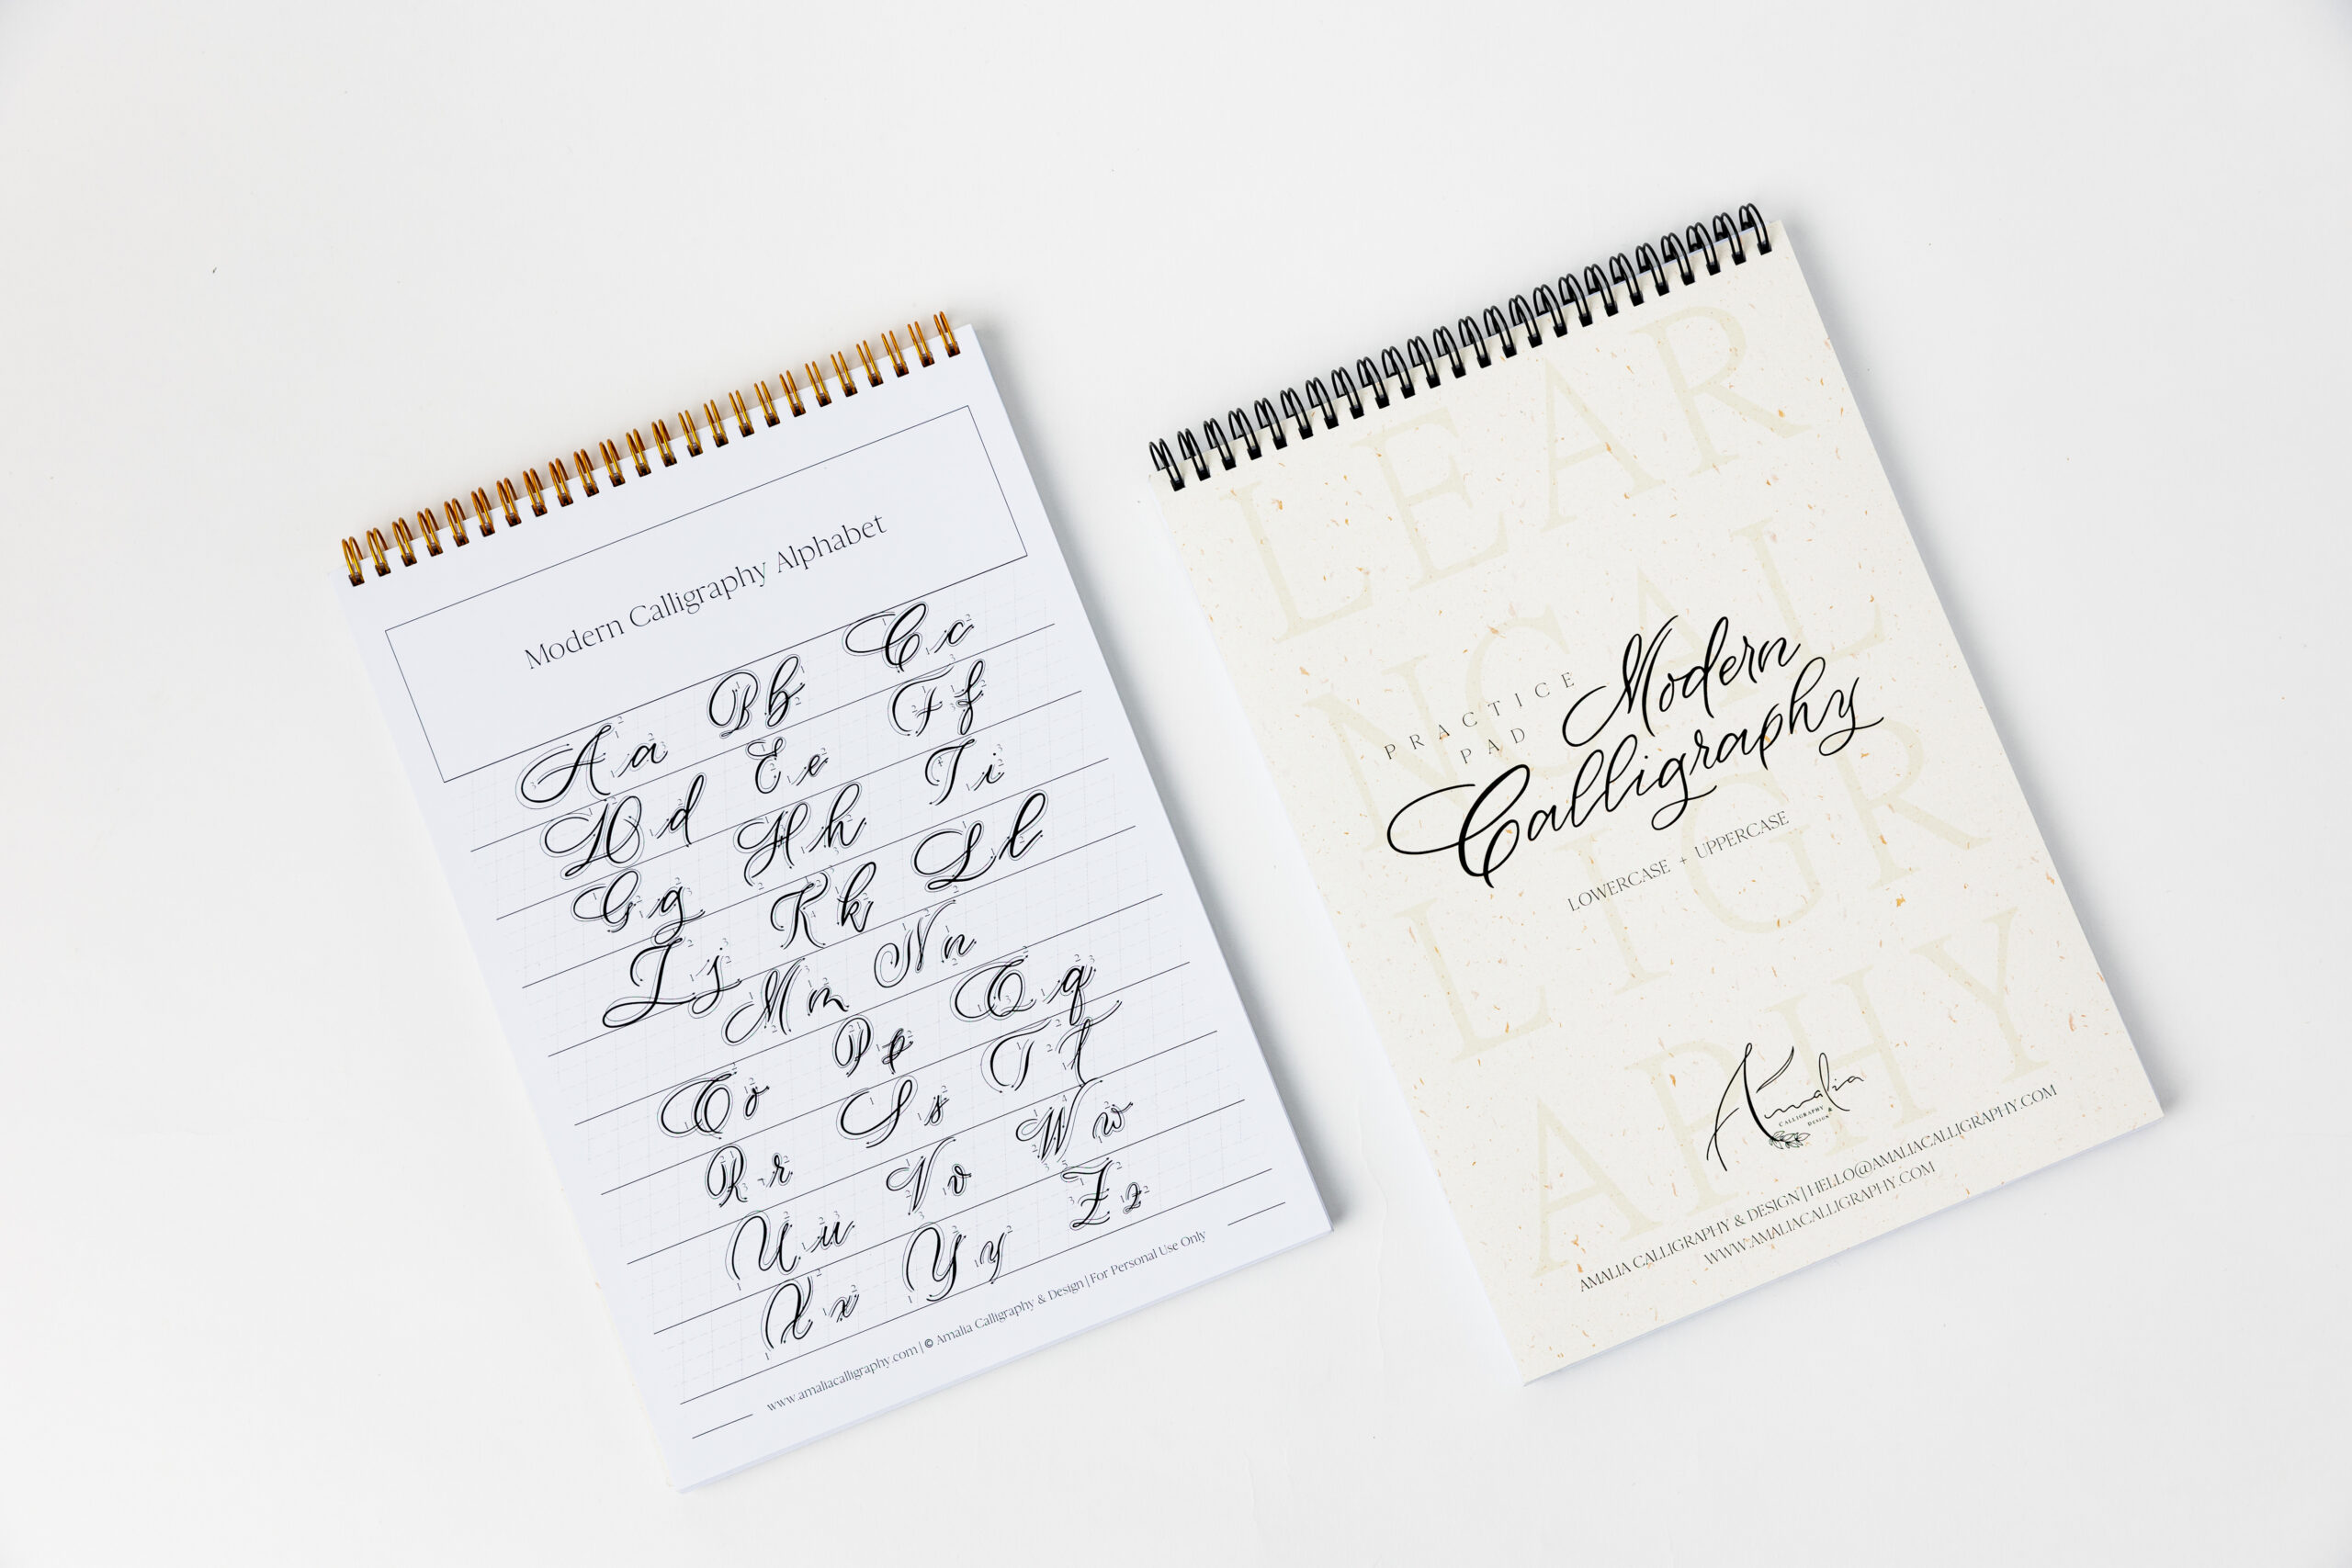 Modern Calligraphy Alphabet
Aa Bb Cc
Dd Ee Ff
Gg Hh Ii
Jj Kk Ll
Mm Nn
Oo Pp Qq
Rr Ss Tt
Uu Vv Ww
Xx Yy Zz
www.amaliacalligraphy.com | © Amalia Calligraphy & Design | For Personal Use Only
LEAR
NCAL
LIGR
APHY
PRACTICE
PAD
Modern
Calligraphy
LOWERCASE + UPPERCASE
Amalia
CALLIGRAPHY &
DESIGN
AMALIA CALLIGRAPHY & DESIGN | HELLO@AMALIACALLIGRAPHY.COM
WWW.AMALIACALLIGRAPHY.COM